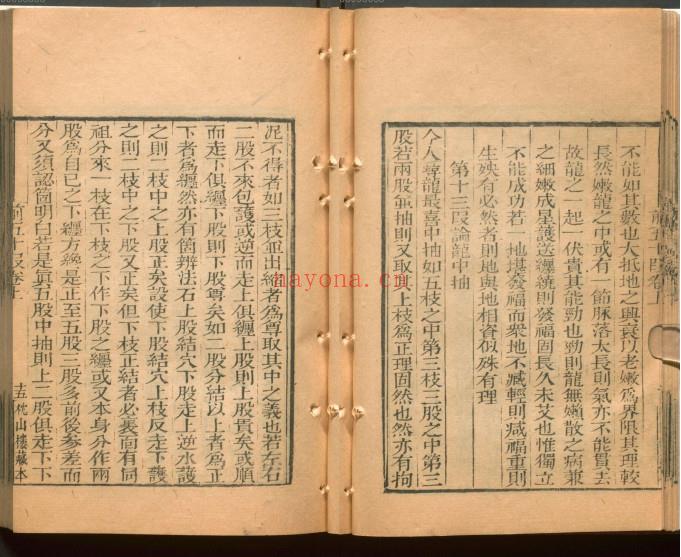 不能如其數也大抵地之興衰以老嫩爲界限其理較
長然嫩龍之中或有一節脈落太長則氣亦不能貫去
故龍之一起一伏貴其能勁也勁則龍無嬾散之病兼
之細嫩成星護送纏繞則發福固長久未艾也惟獨立
不能成功若一地堪發福而衆地不臧輕則减福重則
生殃有必然者則地與地相資似殊有理
第十三叚論龍中抽
今人尋龍最喜中抽如五枝之中第三枝三股之中第三
股若兩股並抽則又取其上枝爲正理固然也然亦有拘
泥不得者如三枝並出總者爲尊取其中之義也若左右
二股不來包護或逆而走上俱纏上股則上股貴矣或順
而走下俱纏下股則下股尊矣如二股分結以上者爲正
下者爲纏然亦有箇辨法石上股結穴下股走上逆水護
之則二枝中之上股正矣設使下股結穴上枝反走下護
之則二枝中之下股又正矣但下枝正結者必要面有同
祖分來一枝在下枝之下作下股之纏或又本身分作兩
股爲自已之下纏方纔是正至五股三股多前後參差而
分又須認箇明白若是眞五股中抽則上二股俱走下下
前五十叚卷上
十五 枕山樓藏本
nayona.cn